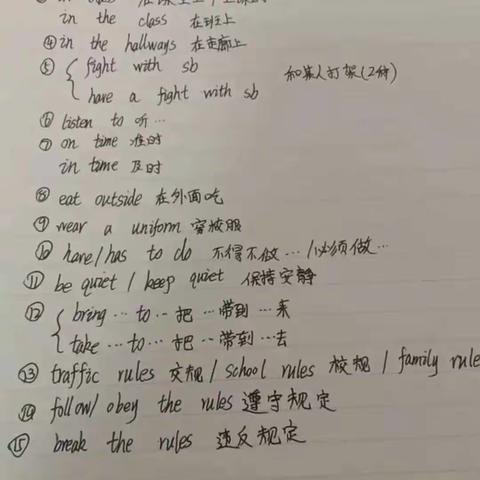 in the class 在班上
④ in the hallways 在走廊上
⑤ { fight with sb 和某人打架(2种)
have a fight with sb
⑥ listen to 听…
⑦ on time 准时
in time 及时
⑧ eat outside 在外面吃
⑨ wear a uniform 穿校服
⑩ have/has to do 不得不做…/必须做…
⑪ be quiet / keep quiet 保持安静
⑫ { bring … to … 把…带到…来
take … to … 把…带到…去
⑬ traffic rules 交规/ school rules 校规 / family rule
⑭ follow/ obey the rules 遵守规定
⑮ break the rules 违反规定